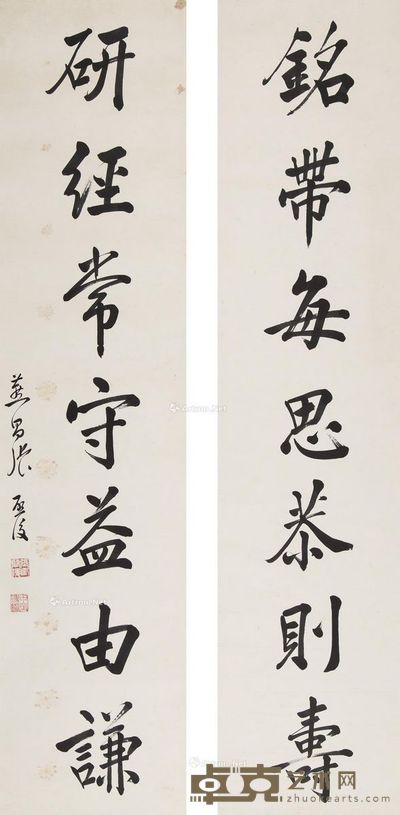 銘帶每思恭則壽
研經常守益由謙
Artron.Net
卓克艺术网
zhuokearts.com